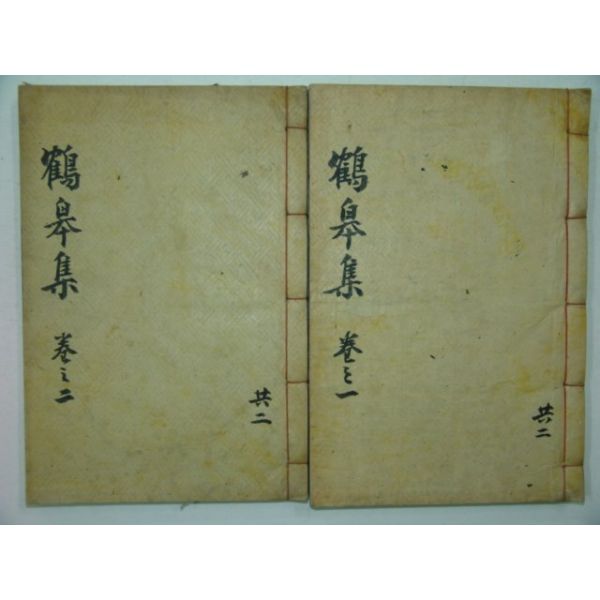 鶴皐集 卷之一
共二
鶴皐集 卷之二
共二